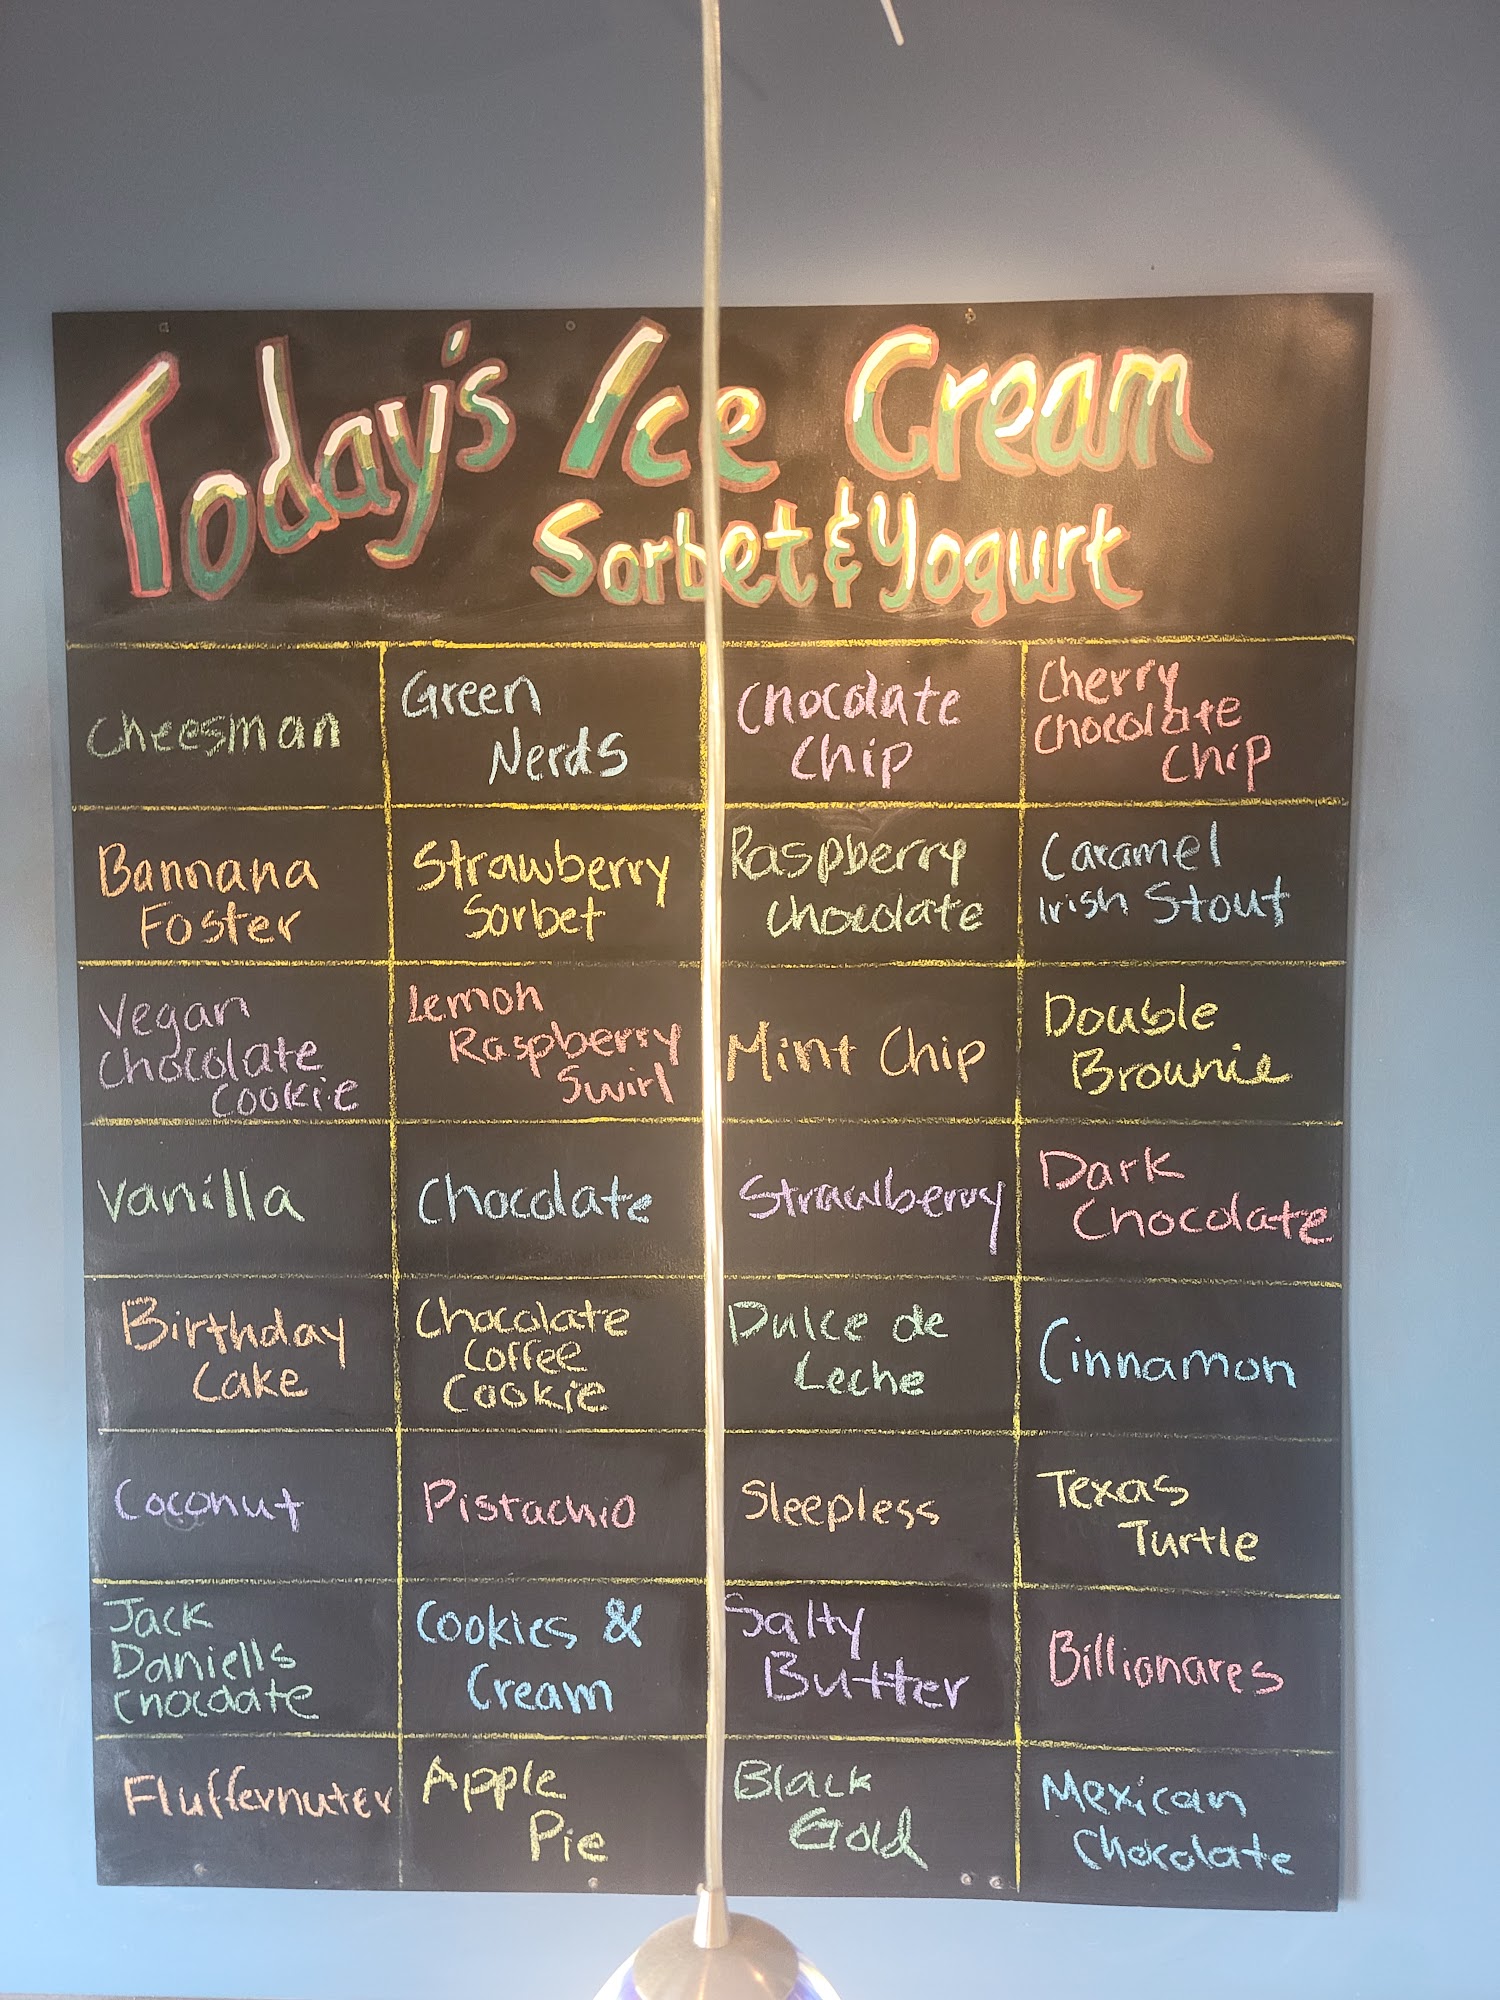 Today's Ice Cream
Sorbet & Yogurt
Cheesman
Green
Nerds
Chocolate
Chip
Cherry
Chocolate
Chip
Bannana
Foster
Strawberry
Sorbet
Raspberry
Chocolate
Caramel
Irish Stout
Vegan
Chocolate
Cookie
Lemon
Raspberry
Swirl
Mint Chip
Double
Brownie
Vanilla
Chocolate
Strawberry
Dark
Chocolate
Birthday
Cake
Chocolate
Coffee
Cookie
Dulce de
Leche
Cinnamon
Coconut
Pistachio
Sleepless
Texas
Turtle
Jack
Daniells
Chocolate
Cookies &
Cream
Salty
Butter
Billionares
Fluffernuter
Apple
Pie
Black
Gold
Mexican
Chocolate